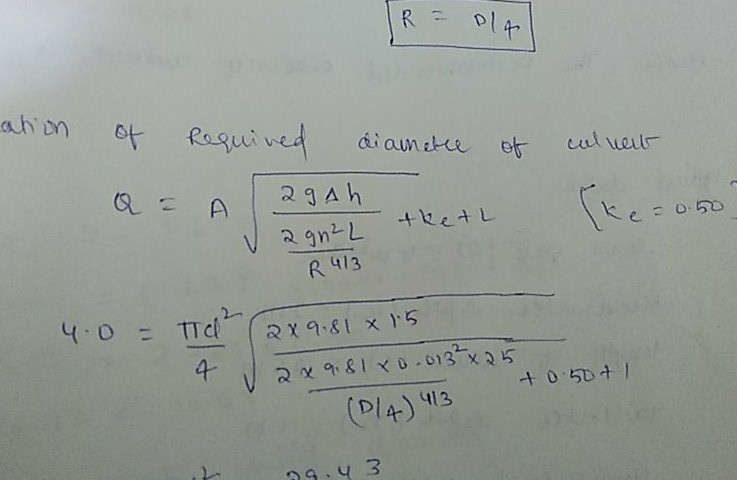 R = D/4
ation of Required diameter of culvert
Q = A √((2gΔh)/((2gn²L)/(R^4/3) + ke + L)) [ke = 0.50]
4.0 = πd²/4 √((2 x 9.81 x 1.5)/((2 x 9.81 x 0.013² x 25)/((D/4)^4/3) + 0.50 + 1))
29.43